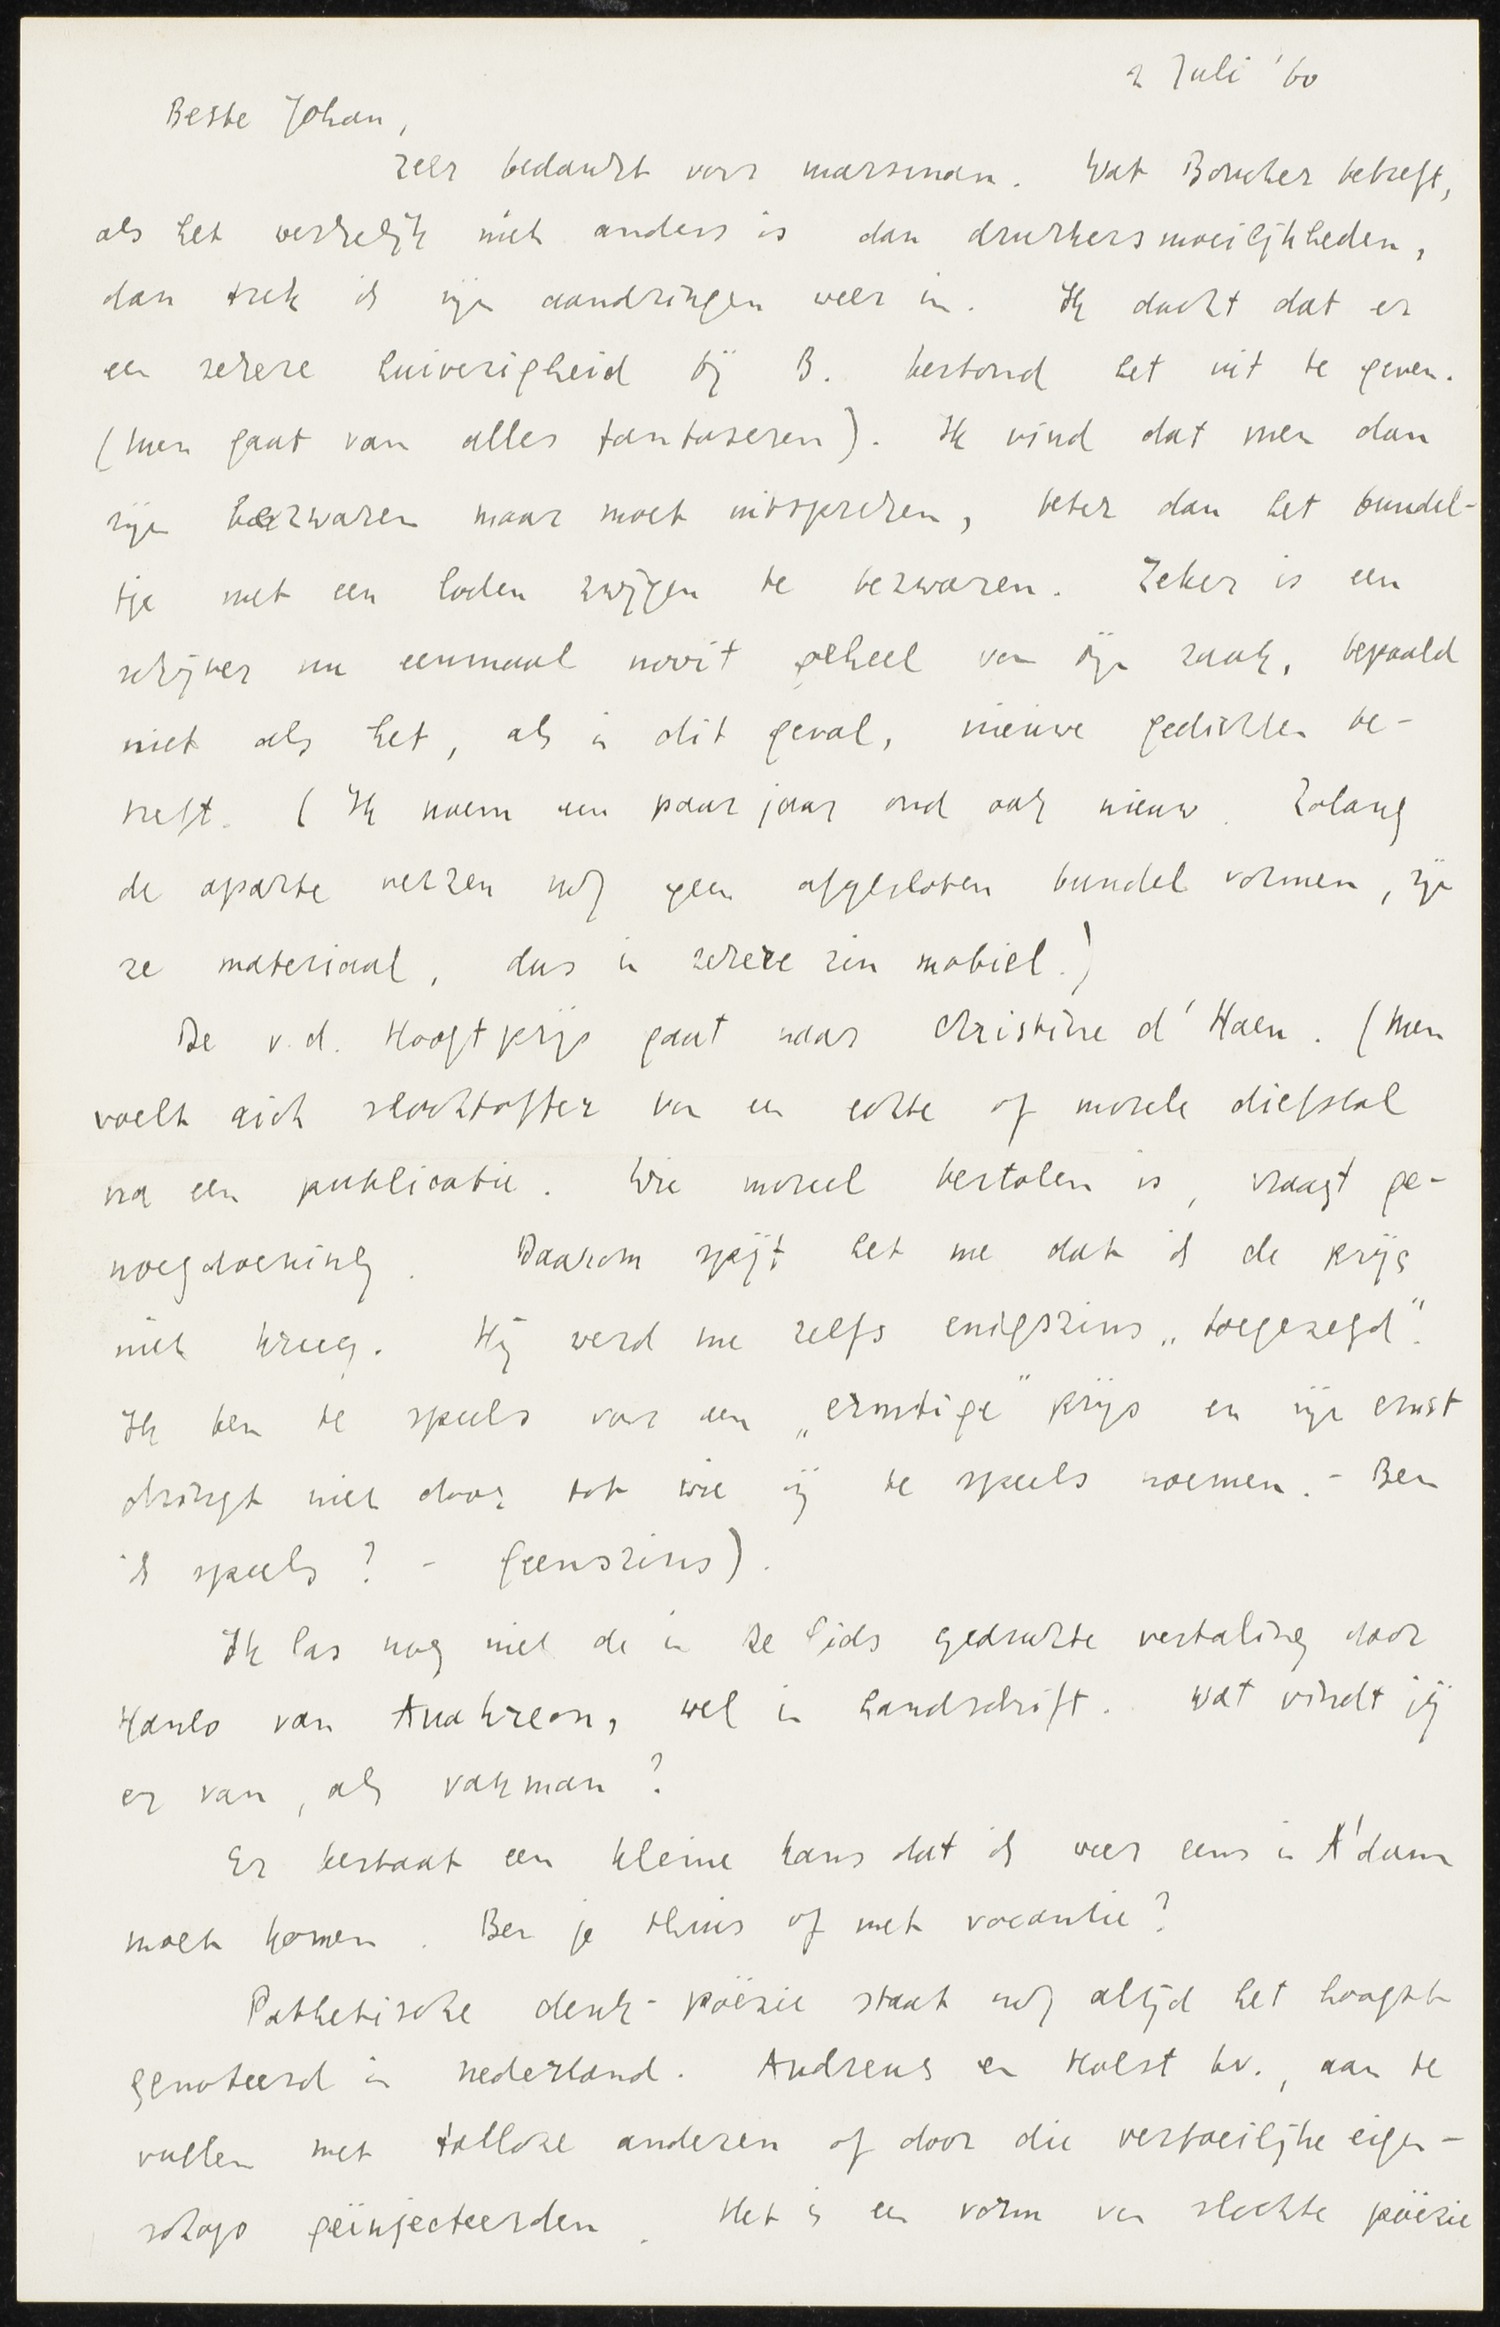 2 Juli '60
Beste Johan,
zeer bedankt voor marsman. Wat Boucher betreft,
als het werkelijk niet anders is dan drukkersmoeilijkheden,
dan trek ik mijn aandringen weer in. Ik dacht dat er
een zekere huiverigheid bij B. bestond het uit te geven.
(men gaat van alles fantaseren). Ik vind dat men dan
zijn bezwaren maar moet uitspreken, beter dan het bundel-
tje met een loden zwijgen te bezwaren. Zeker is een
schrijver nu eenmaal nooit geheel van zijn zaak, bepaald
niet als het, als in dit geval, nieuwe gedichten be-
treft. (Ik noem een paar jaar oud ook nieuw. Zolang
de aparte verzen nog geen afgesloten bundel vormen, zijn
ze materiaal, dus in zekere zin mobiel.)
De v.d. Hoogtprijs gaat naar Christine d'Haen. (Men
voelt zich slachtoffer van een echte of morele diefstal
na een publicatie. Wie moreel bestolen is, vraagt ge-
noegdoening. Daarom spijt het me dat ik de prijs
niet kreeg. Hij werd me zelfs enigszins „toegezegd".
Ik ben te speels voor een „ernstige" prijs en mijn ernst
dringt niet door tot wie mij te speels noemen. - Ben
ik speels? - Geenszins).
Ik las nog niet de in De Gids gedrukte vertaling door
Hanlo van Anakreon, wel in handschrift. Wat vindt jij
er van, als vakman?
Er bestaat een kleine kans dat ik weer eens in A'dam
moet komen. Ben je thuis of met vacantie?
Pathetische denk-poëzie staat nog altijd het hoogst
genoteerd in nederland. Andreus en Holst bv., aan te
vullen met talloze anderen of door die verfoeilijke eigen-
schap geïnjecteerden. Het is een vorm van slechte poëzie